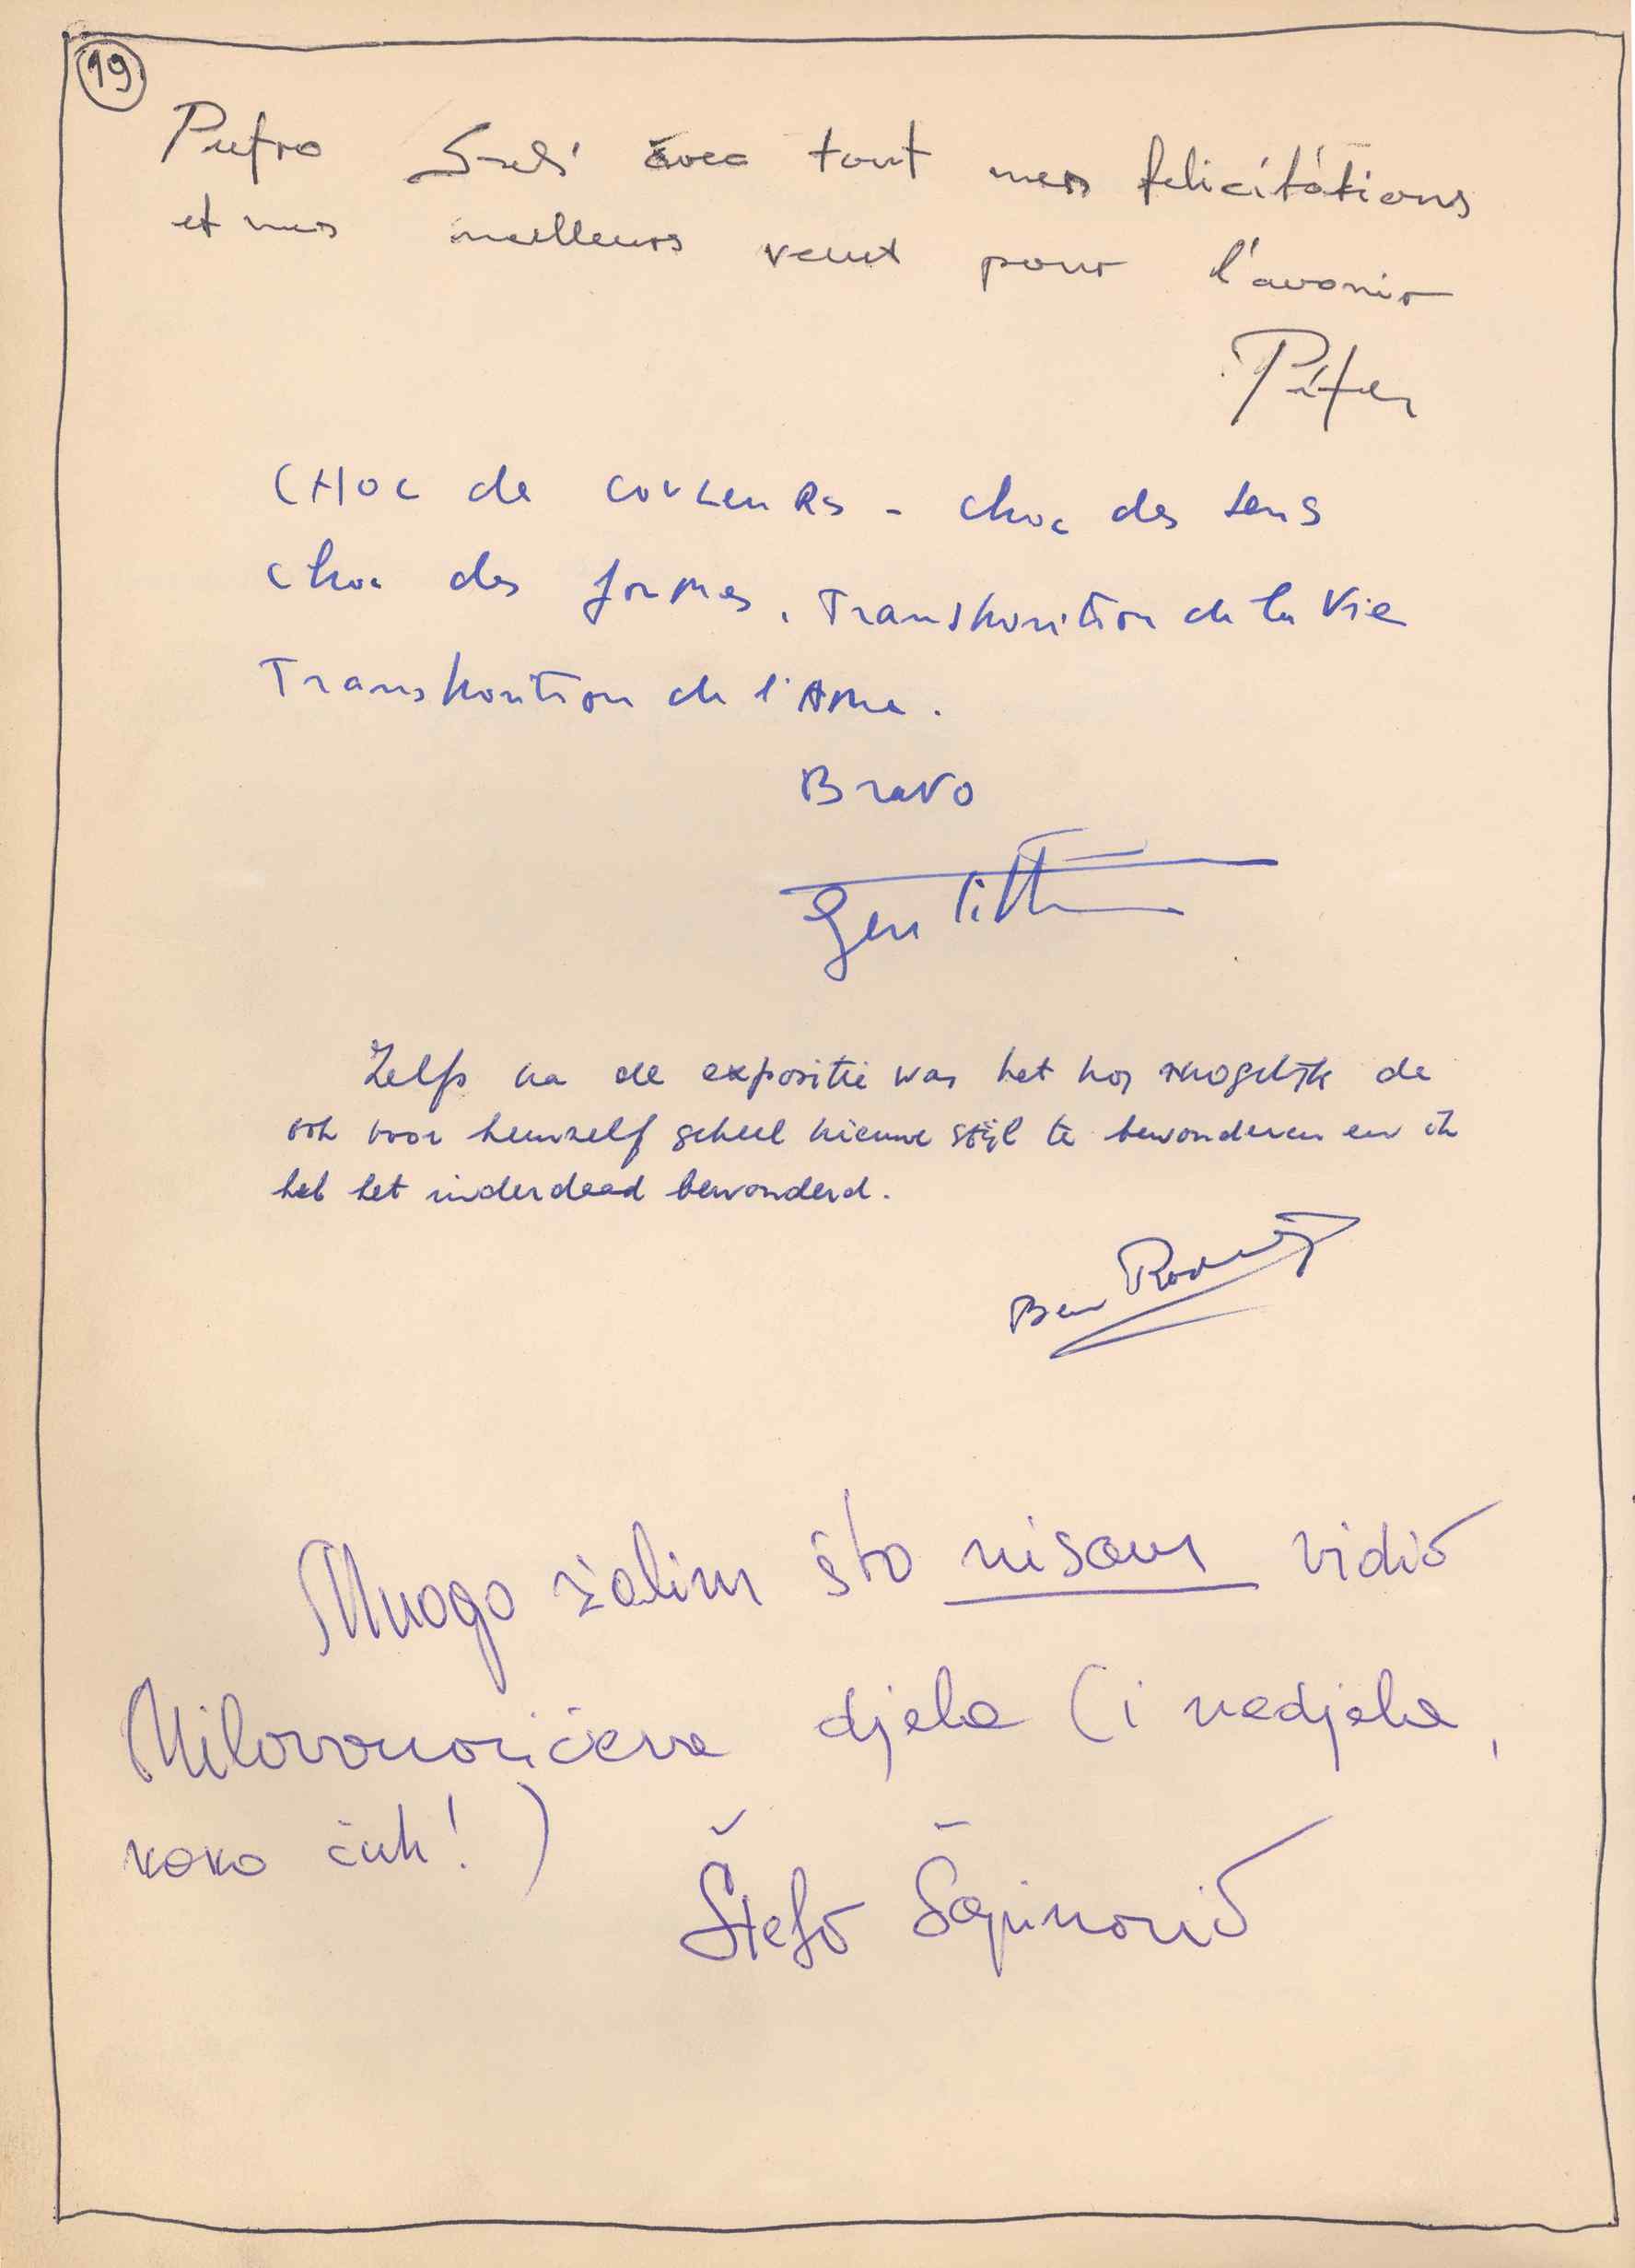 19
avec tout mes felicitátions
et mes meilleurs veux pour l'avenir
CHOC de COULEURS - choc des sens
choc des formes. Transposition de la Vie
Transposition de l'AMe.
BraVo
Zelfs na de expositie was het nog mogelijk de
ook voor hemzelf geheel nieuwe stijl te bewonderen en ik
heb het inderdaad bewonderd.
Ben
Mnogo žalim što nisam vidio
Milovanovićeva djela (i nedjela,
kako čuh!)
Štefo Šapinović